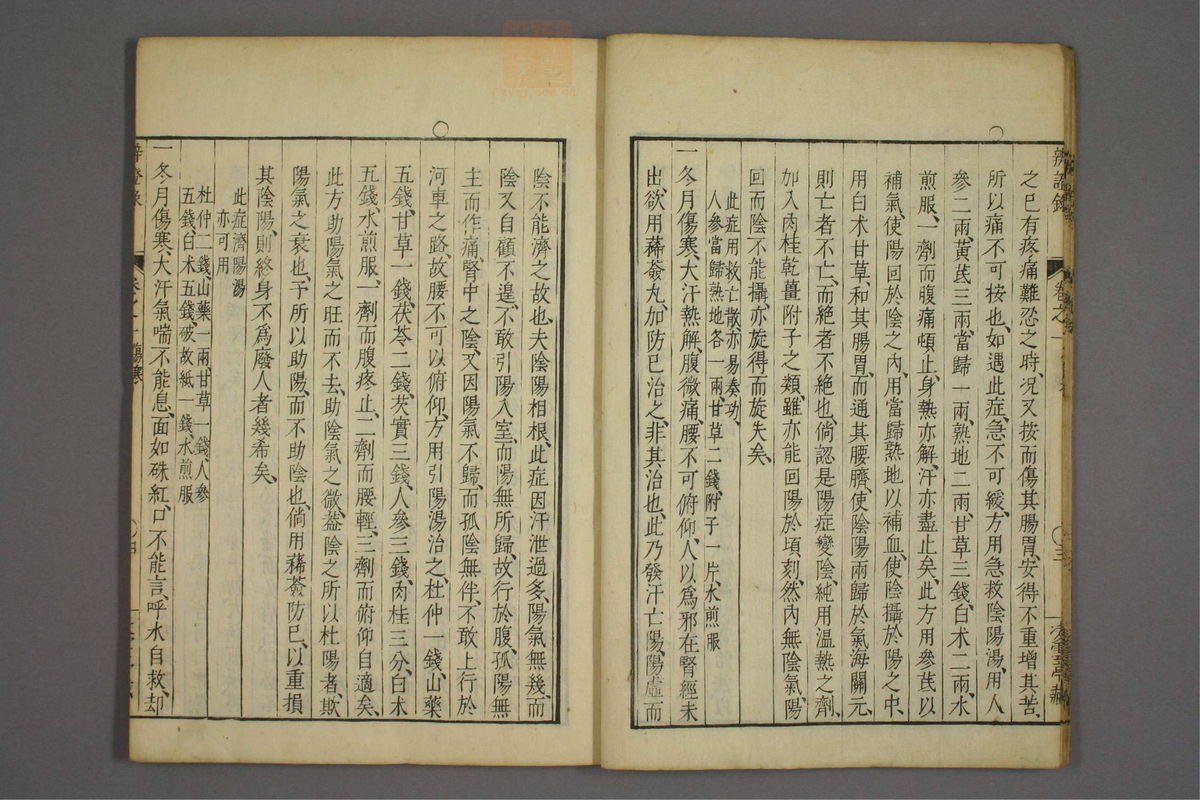 辨證錄
卷之一
之已有疼痛難忍之時、况又按而傷其腸胃、安得不重增其苦、
所以痛不可按也、如遇此症、急不可緩、方用急救陰陽湯、用人
參二兩、黃芪三兩、當歸一兩、熟地二兩、甘草三錢、白术二兩、水
煎服、一劑而腹痛頓止、身熱亦解、汗亦盡止矣、此方用參芪以
補氣、使陽回於陰之內、用當歸熟地以補血、使陰攝於陽之中、
用白术甘草、和其腸胃、而通其腰臍、使陰陽兩歸於氣海關元、
則亡者不亡、而絕者不絕也、倘認是陽症變陰、純用溫熱之劑、
加入肉桂乾薑附子之類、雖亦能回陽於頃刻、然內無陰氣、陽
回而陰不能攝、亦旋得而旋失矣、
此症用救亡散亦易奏功、
人參當歸熟地各一兩、甘草二錢、附子一片、水煎服
一冬月傷寒、大汗熱解、腹微痛、腰不可俯仰、人以爲邪在腎經未
出、欲用豨薟丸、加防已治之、非其治也、此乃發汗亡陽、陽虛而
陰不能濟之故也、夫陰陽相根、此症因汗泄過多、陽氣無幾、而
陰又自顧不遑、不敢引陽入室、而陽無所歸、故行於腹、孤陽無
主而作痛、腎中之陰、又因陽氣不歸、而孤陰無伴、不敢上行於
河車之路、故腰不可以俯仰、方用引陽湯治之、杜仲一錢、山藥
五錢、甘草一錢、茯苓二錢、芡實三錢、人參三錢、肉桂三分、白术
五錢、水煎服、一劑而腹疼止、二劑而腰輕、三劑而俯仰自適矣、
此方助陽氣之旺而不去、助陰氣之微、葢陰之所以杜陽者、欺
陽氣之衰也、予所以助陽、而不助陰也、倘用豨薟防已、以重損
其陰陽、則終身不爲廢人者幾希矣、
此症濟陽湯
亦可用
杜仲二錢、山藥一兩、甘草一錢、人參
五錢、白术五錢、破故紙一錢、水煎服
一冬月傷寒、大汗氣喘不能息、面如硃紅、口不能言、呼水自救、却